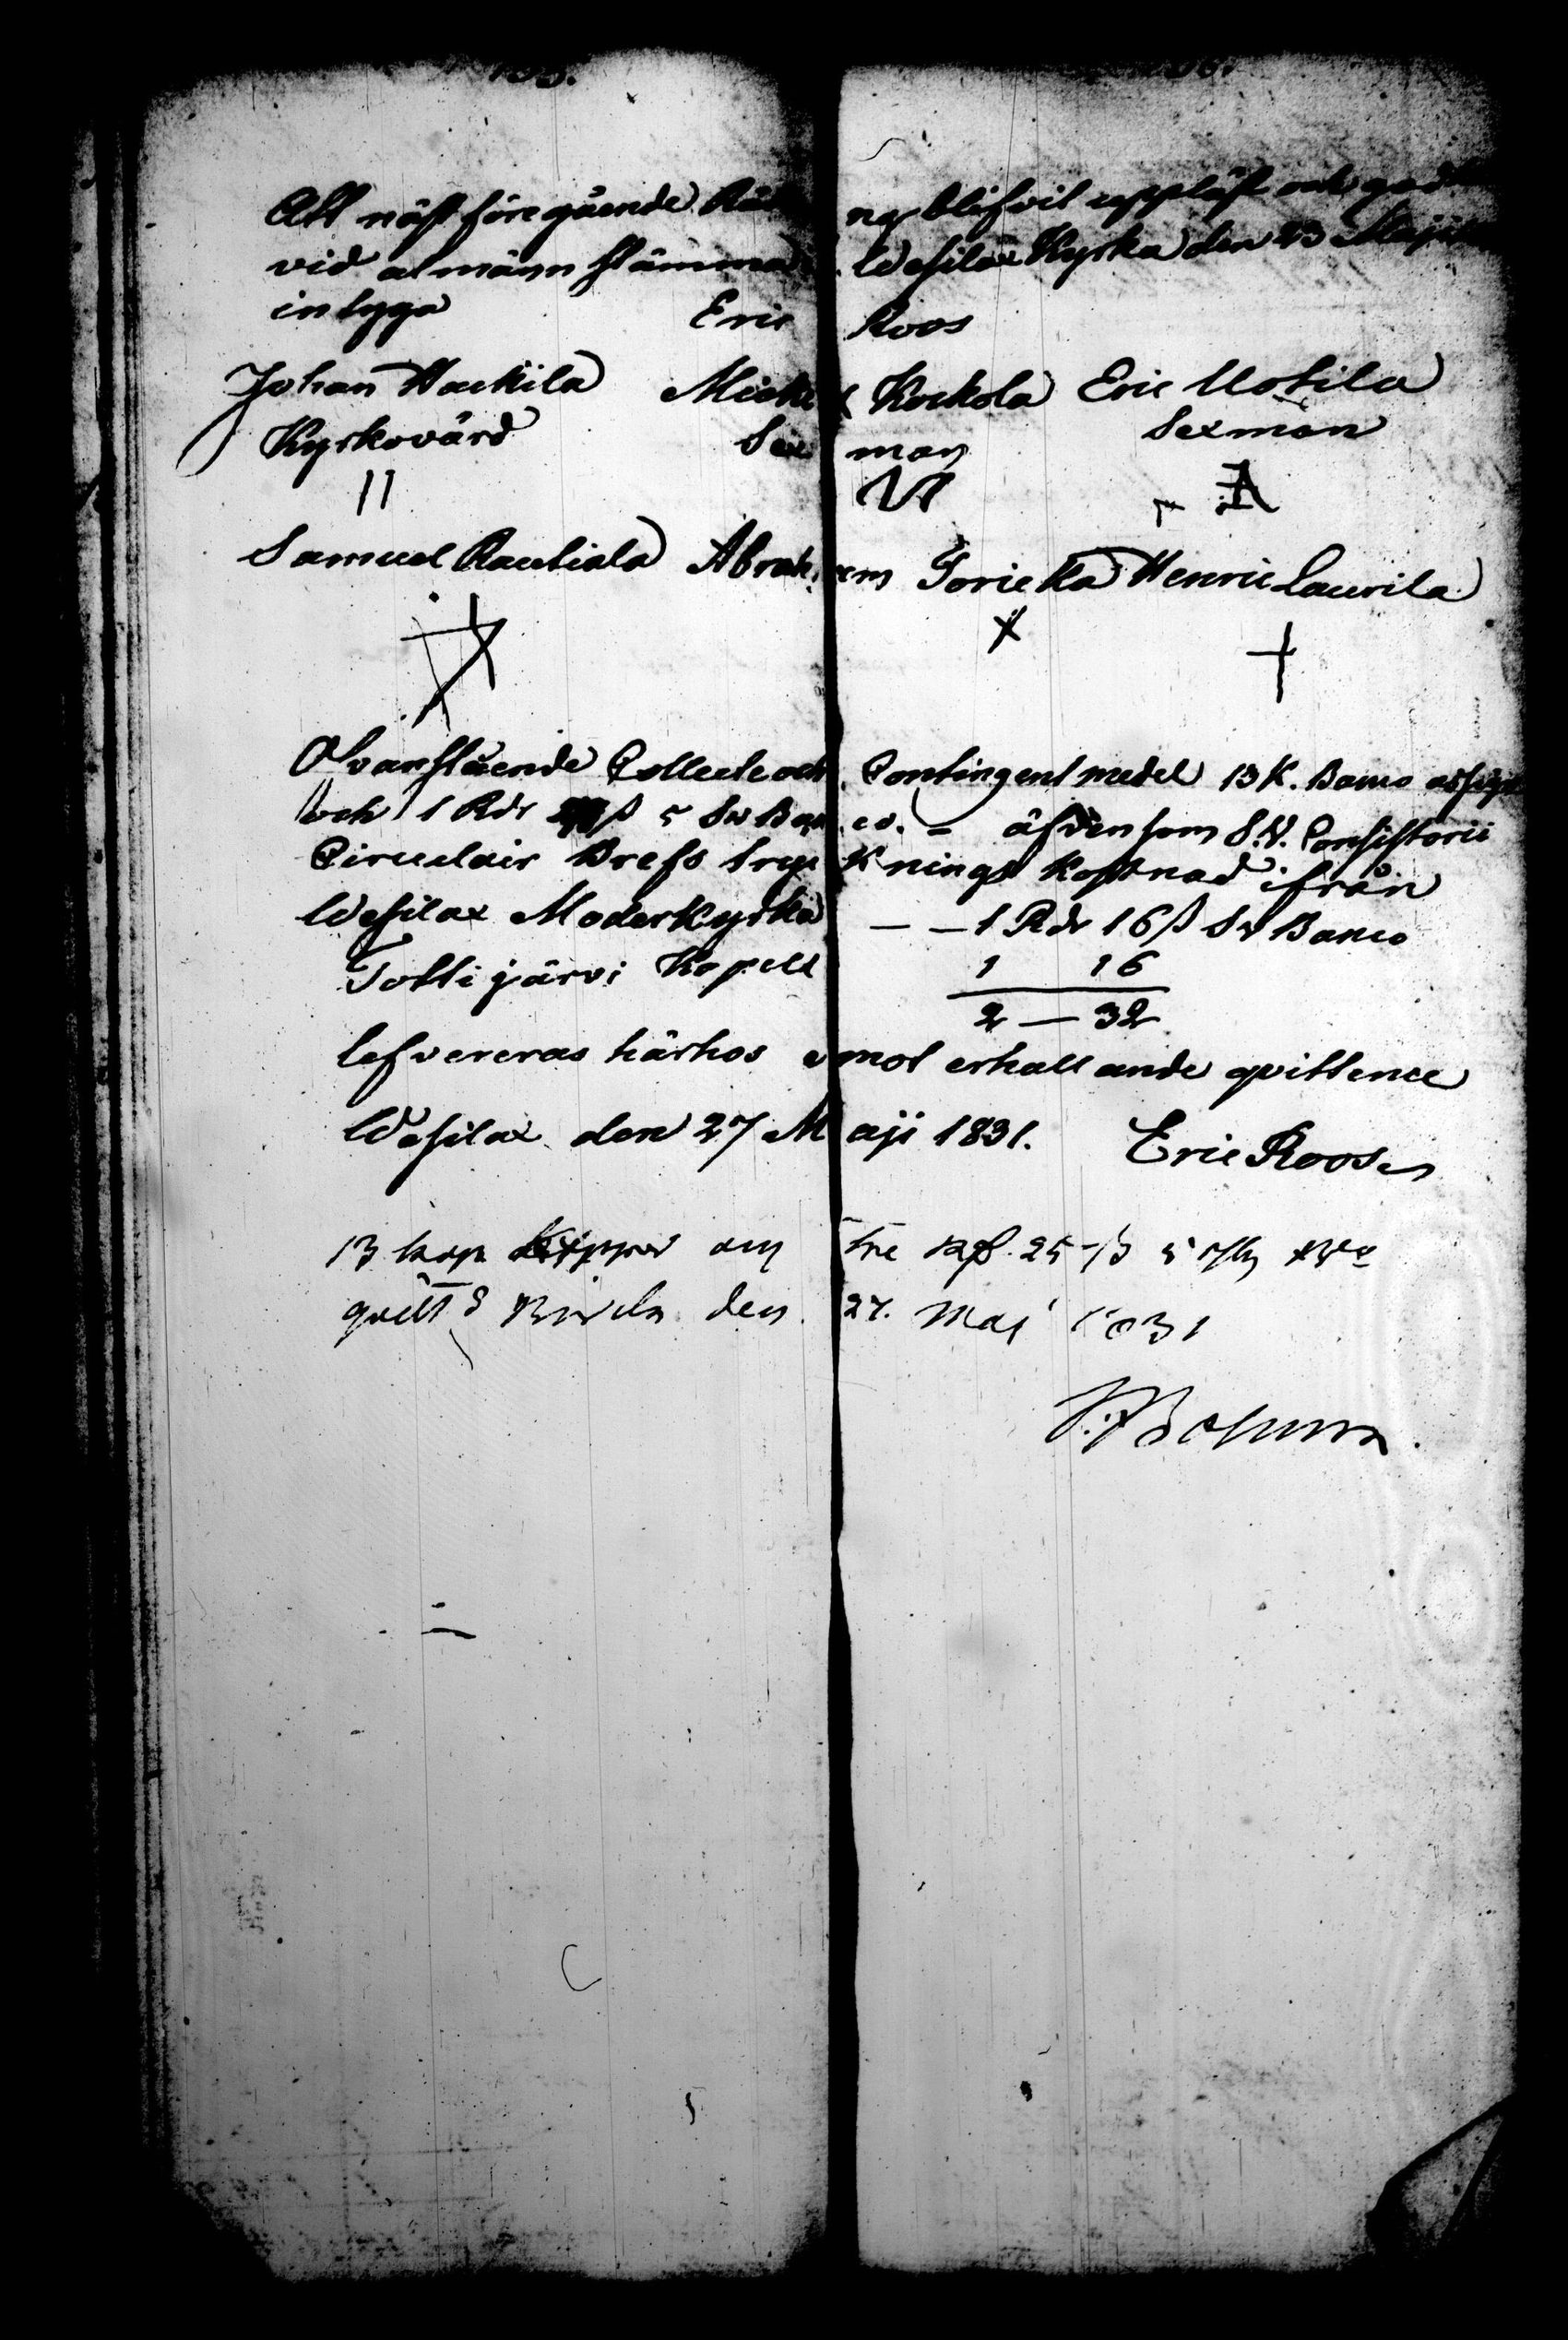 Att näst föregående Räkning blifvit uppläst och god
vid almänn stämma i Wesilax Kyrka den 23 Maji
intyga Eric Roos
Johan Hackila Mickel Kockola Eric Uotila
Kyrkovärd Sexman Sexman
Samuel Rautiala Abraham Jorickka Henric Laurila
Ofvanstående Collecte och Contingent medel 13 K. Banco assign
och 1 Rdr ß 5 Sw Banco. – äfvensom S.V. Consistorii
Circulair Brefs tryckningskostnad ifrån
Wesilax Moderkyrka – – 1 Rdr 16 ß Sw Banco
Tottijärvi Kapell 1 16
2 – 32
lefvereras härhos emot erhållande qvittence
Wesilax den 27 Maji 1831. Eric Roos
13 kop och tre Rd. 25 ß
qvitt den 27. Maj 1831